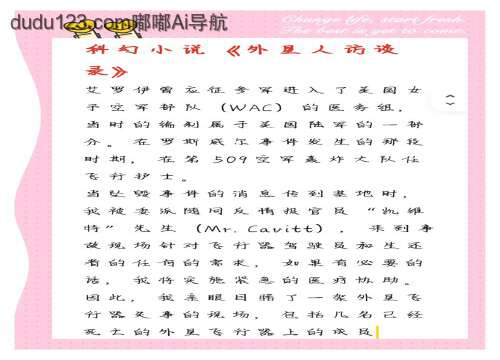 dudu123.com嘟嘟Ai导航
Change life, start fresh
The best is yet to come
科幻小说《外星人访谈
录》
艾罗伊曾应征参军进入了美国女
子空军部队（WAC）的医务组，
当时的编制属于美国陆军的一部
分。在罗斯威尔事件发生的那段
时期，在第509空军轰炸大队任
飞行护士。
当坠毁事件的消息传到基地时，
我被委派随同反情报官员“凯维
特”先生（Mr. Cavitt），来到事
故现场针对飞行器驾驶员和生还
者的任何的需求，如果有必要的
话，我将实施紧急的医疗协助。
因此，我亲眼目睹了一架外星飞
行器失事的现场，包括几名已经
死亡的外星飞行器上的成员